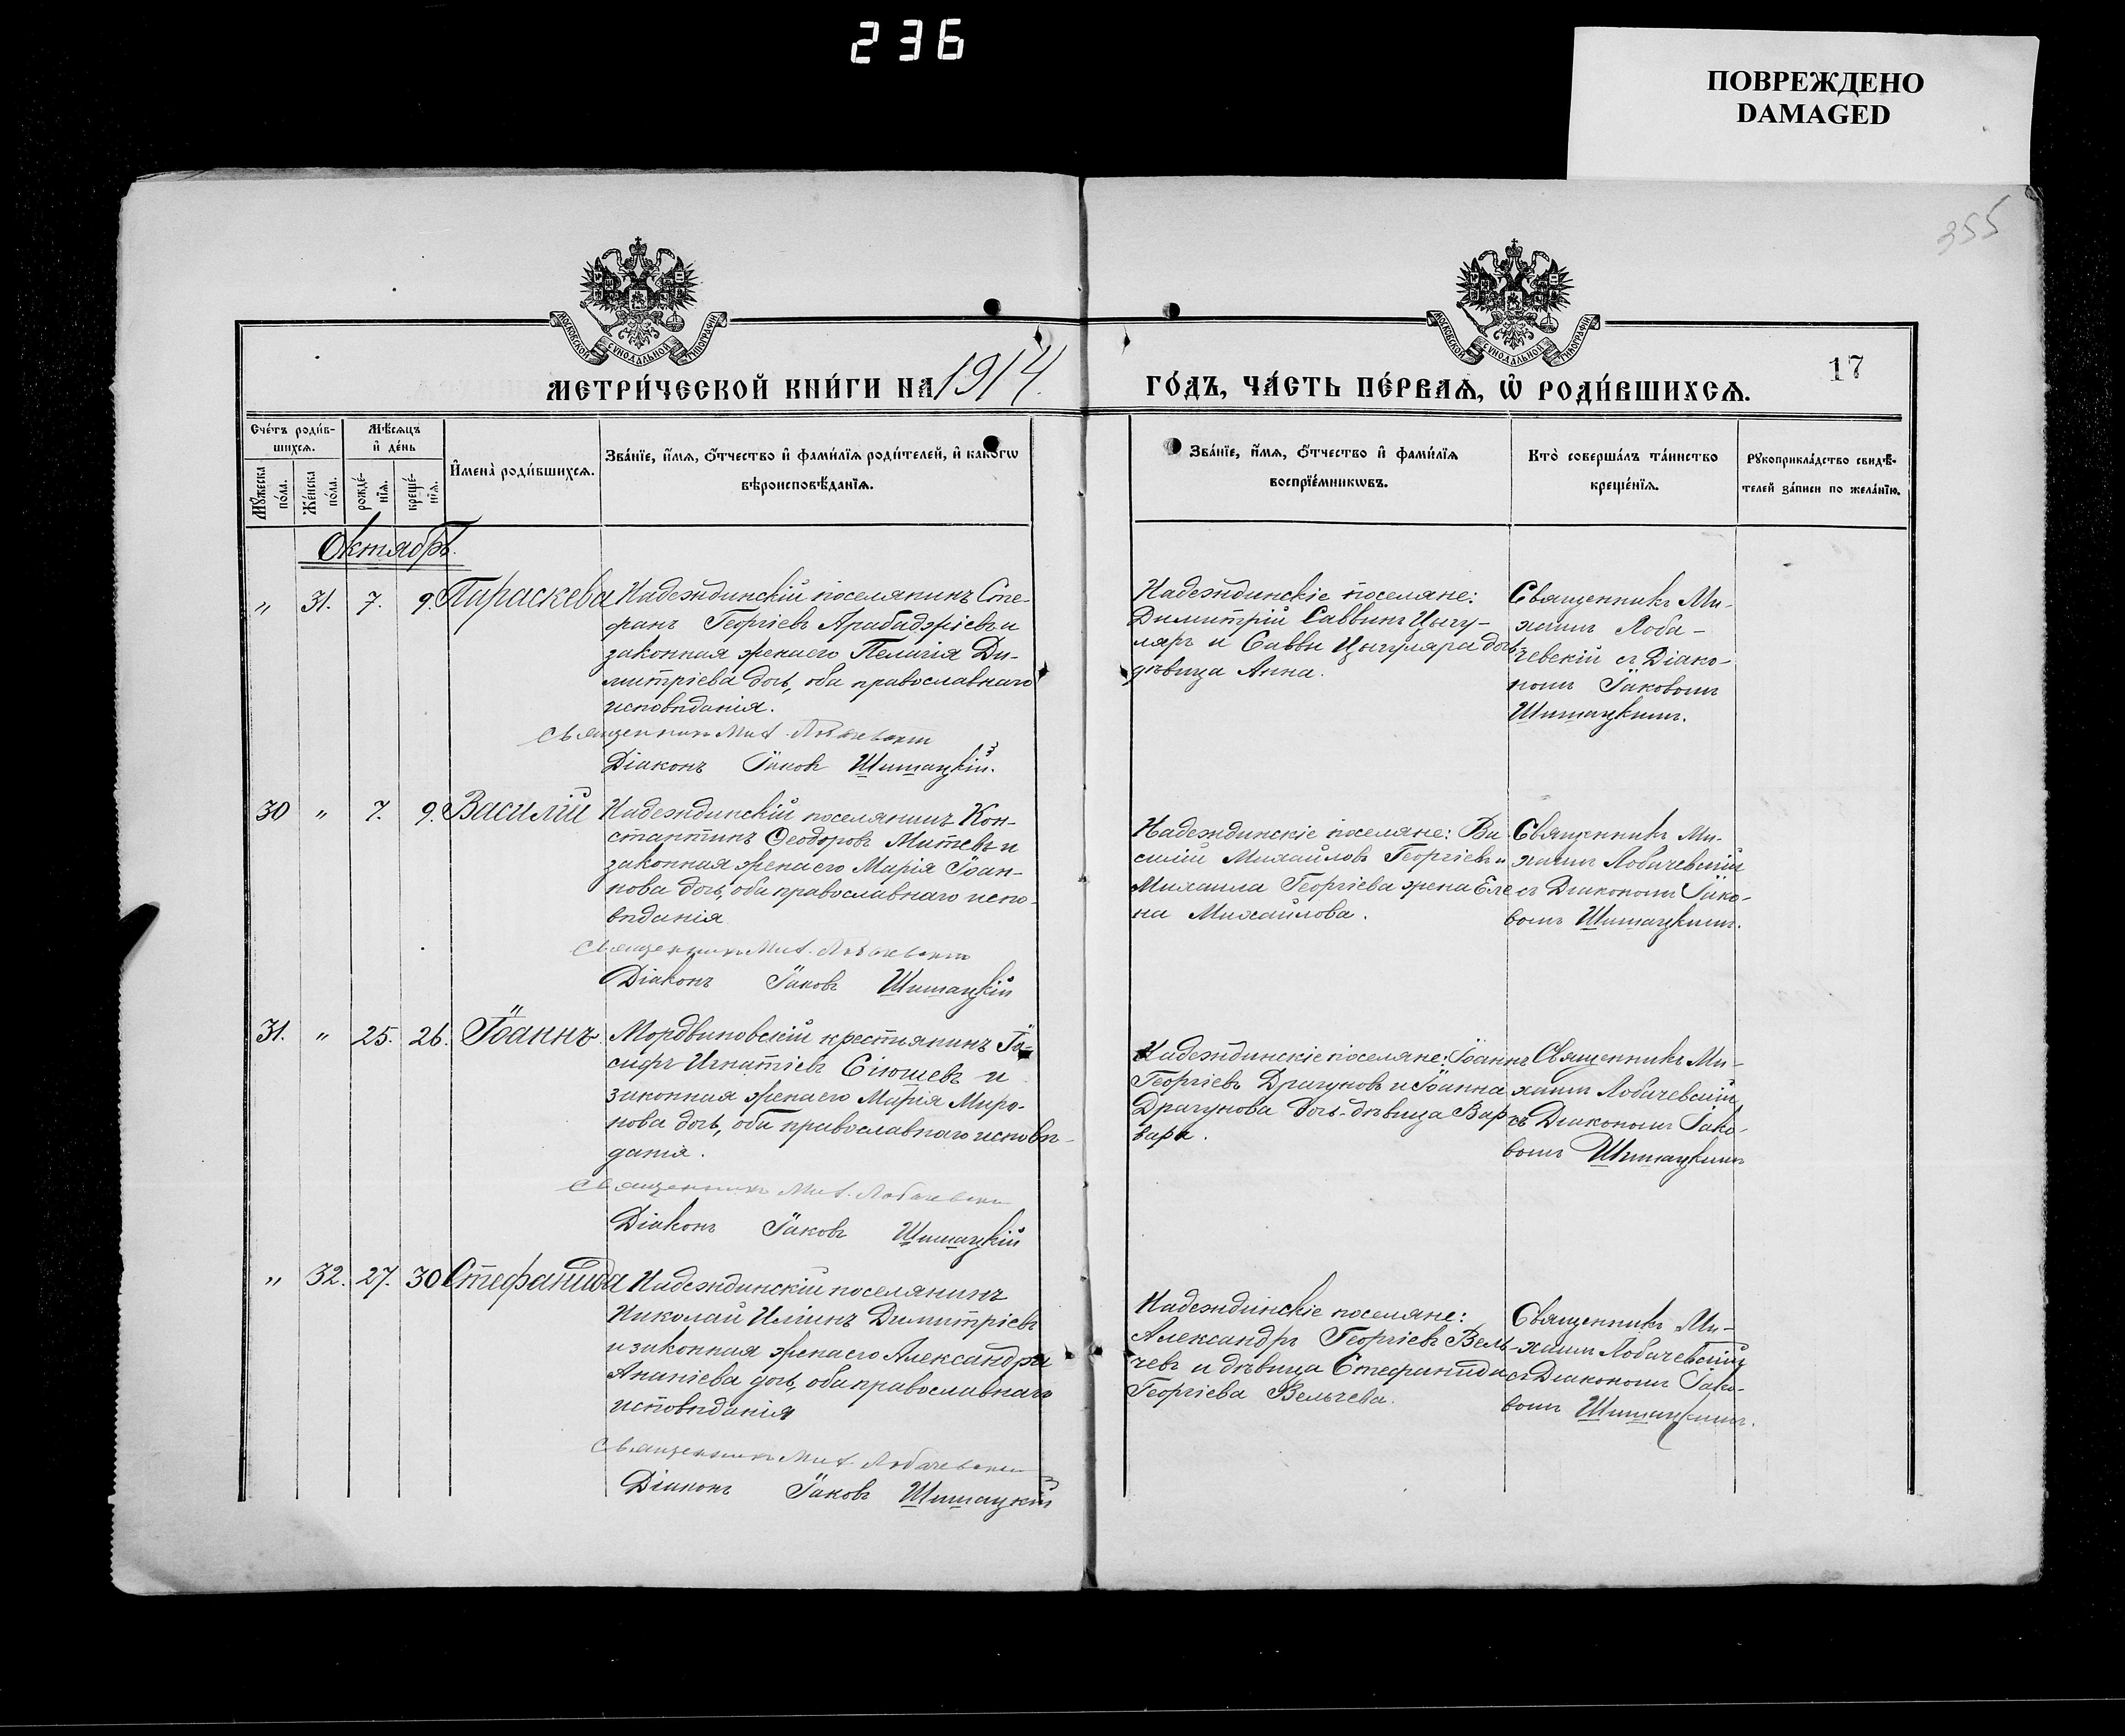 236
ПОВРЕЖДЕНО
DAMAGED
355
МОСКОВСКОЙ СѴНОДАЛЬНОЙ ТИПОГРАФІИ
МОСКОВСКОЙ СѴНОДАЛЬНОЙ ТИПОГРАФІИ
МЕТРИ́ЧЕСКОЙ КНИ́ГИ НА 1914.
ГО́ДЪ, ЧА́СТЬ ПЕ́РВАѦ, Ѡ҆ РОДИ́ВШИХСѦ.
17
Сче́тъ роди́в-
шихсѧ.
Мꙋ́жеска
по́ла.
Же́нска
по́ла.
Мѣ́сѧцъ
и҆ де́нь
рожде́-
нїѧ.
креще́-
нїѧ.
И҆мена̀ роди́вшихсѧ.
Зва́нїе, и҆́мѧ, ѻ҆́тчество и҆ фами́лїѧ роди́телей, и҆ како́гѡ
вѣроисповѣ́данїѧ.
Зва́нїе, и҆́мѧ, ѻ҆́тчество и҆ фами́лїѧ
воспрїе́мникѡвъ.
Кто̀ соверша́лъ та́инство
креще́нїѧ.
Рꙋкоприкла́дство свидѣ́-
телей за́писи по жела́нїю.
Октябрь.
„ 31. 7. 9. Параскева
Надеждинскій поселянинъ Сте-
фанъ Георгіевъ Арабаджіевъ и
законная жена его Пелагія Ди-
митріева дочь, оба православнаго
исповѣданія.
Священникъ Мих. Лобачевскій
Діаконъ Іаковъ Шишацкій.
Надеждинскіе поселяне:
Димитрій Саввинъ Цыгу-
ляръ и Саввы Цыгуляра дочь
дѣвица Анна.
Священникъ Ми-
хаилъ Лоба-
чевскій съ Діако-
номъ Іаковомъ
Шишацкимъ.
30 „ 7. 9. Василій
Надеждинскій поселянинъ Кон-
стантинъ Ѳеодоровъ Митевъ и
законная жена его Марія Іоан-
нова дочь, оба православнаго испо-
вѣданія
Священникъ Мих. Лобачевскій
Діаконъ Іаковъ Шишацкій
Надеждинскіе поселяне: Ва
силій Михайловъ Георгіевъ и
Михаила Георгіева жена Еле
на Михайлова.
Священникъ Ми-
хаилъ Лобачевскій
съ Діакономъ Іако-
вомъ Шишацкимъ.
31. „ 25. 26. Іоаннъ.
Мордвиновскій крестьянинъ Іо-
сифъ Игнатіевъ Сіюшевъ и
законная жена его Марія Миро-
нова дочь, оба православнаго исповѣ-
данія.
Священникъ Мих. Лобачевскій
Діаконъ Іаковъ Шишацкій
Надеждинскіе поселяне: Іоаннъ
Георгіевъ Драгуновъ и Іоанна
Драгунова дочь-дѣвица Вар
вара.
Священникъ Ми-
хаилъ Лобачевскій
съ Діакономъ Іако-
вомъ Шишацкимъ
„ 32. 27. 30 Стефанида
Надеждинскій поселянинъ
Николай Илiинъ Димитріевъ
и законная жена его Александра
Ананіева дочь, оба православнаго
исповѣданія
Священникъ Мих. Лобачевскій
Діаконъ Іаковъ Шишацкій
Надеждинскіе поселяне:
Александръ Георгіевъ Вель-
чевъ и дѣвица Стефанида
Георгіева Вельчева.
Священникъ Ми-
хаилъ Лобачевскій
съ Діакономъ Іако-
вомъ Шишацкимъ.